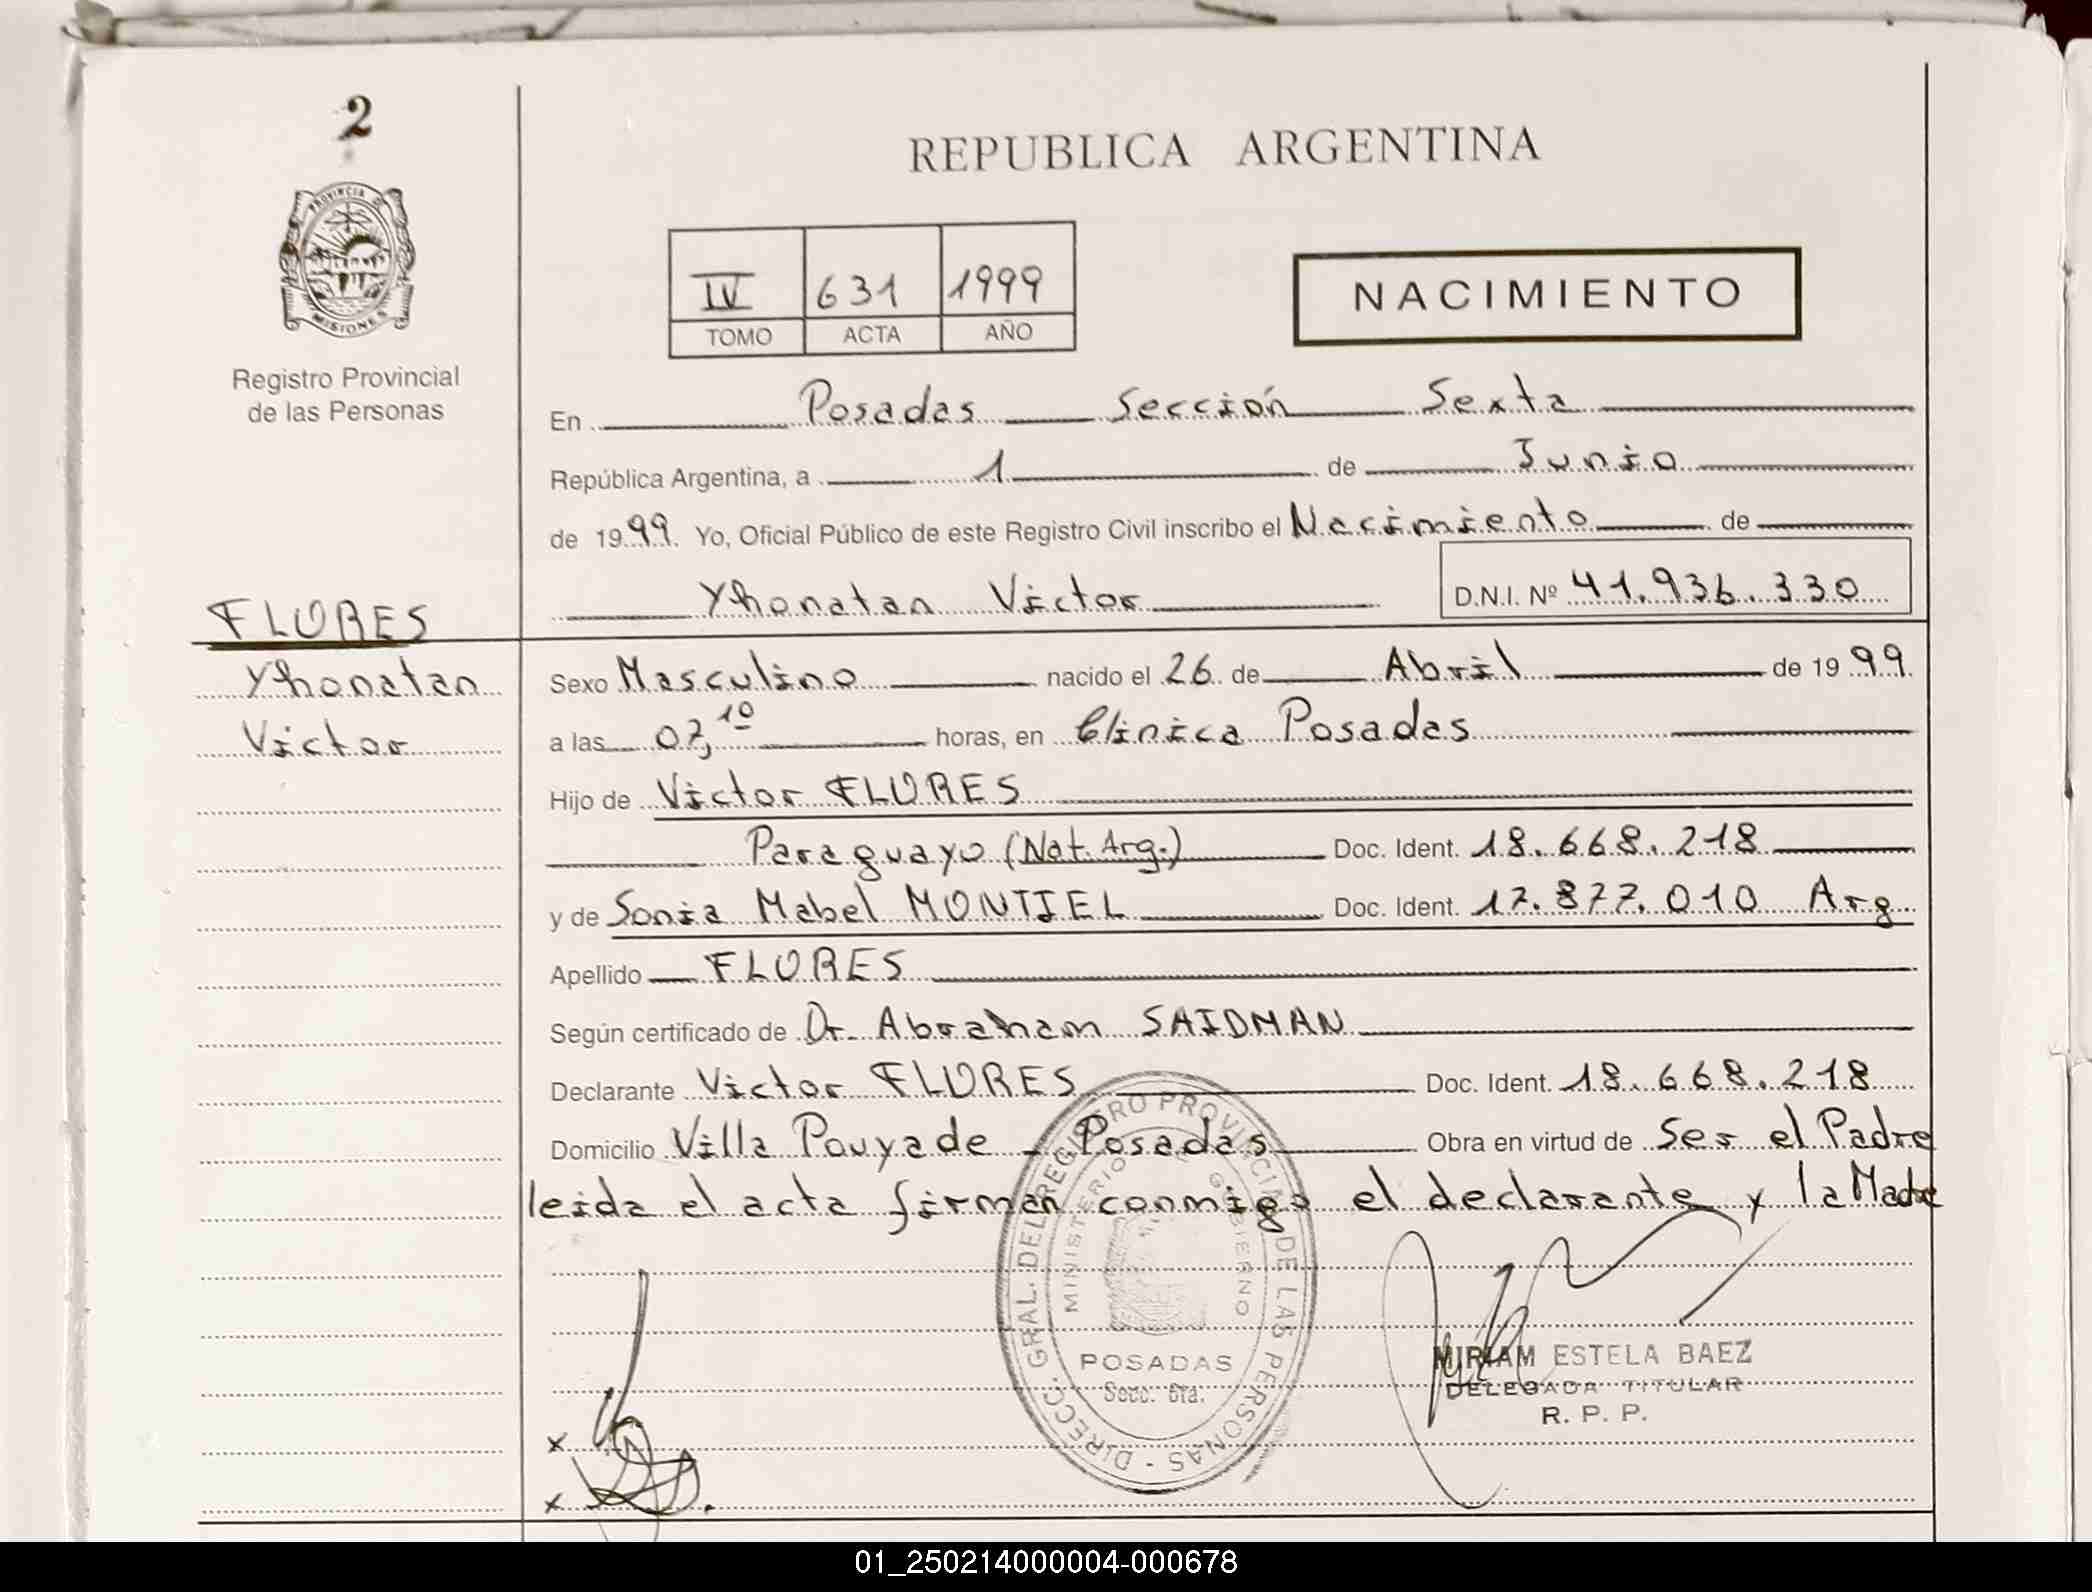 2
REPUBLICA ARGENTINA
PROVINCIA DE
MISIONES
IV 631 1999
TOMO ACTA AÑO
NACIMIENTO
Registro Provincial
de las Personas
En Posadas Sección Sexta
República Argentina, a 1 de Junio
de 1999. Yo, Oficial Público de este Registro Civil inscribo el Nacimiento de
Yhonatan Victor D.N.I. Nº 41.936.330
FLORES
Yhonatan
Victor
Sexo Masculino nacido el 26 de Abril de 1999
a las 07,10 horas, en Clinica Posadas
Hijo de Victor FLORES
Paraguayo (Nat. Arg.) Doc. Ident. 18.668.218
y de Sonia Mabel MONTIEL Doc. Ident. 17.877.010 Arg
Apellido FLORES
Según certificado de Dr. Abraham SAIDMAN
Declarante Victor FLORES Doc. Ident. 18.668.218
Domicilio Villa Pouyade - Posadas Obra en virtud de Ser el Padre
leida el acta firman conmigo el declarante y la Madre
DIRECC. GRAL. DEL REGISTRO PROVINCIAL DE LAS PERSONAS -
MINISTERIO DE GOBIERNO
POSADAS
Secc. 6ta.
MIRIAM ESTELA BAEZ
DELEGADA TITULAR
R. P. P.
x
x
01_250214000004-000678